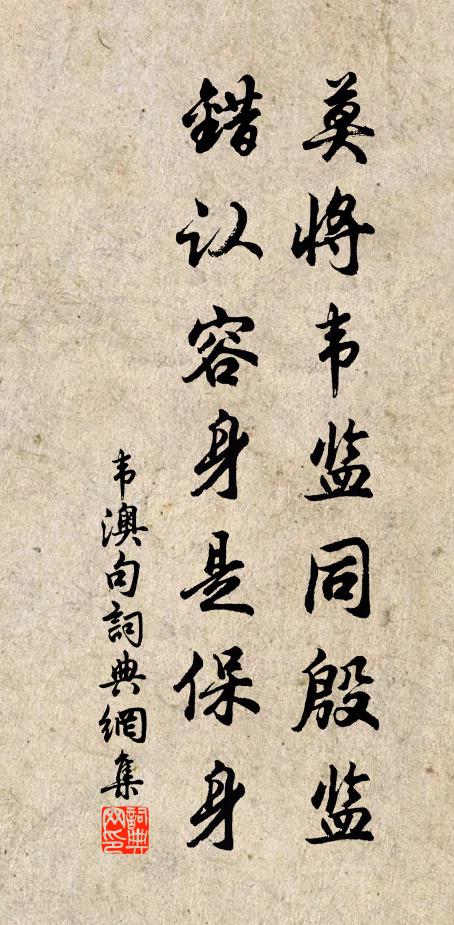 莫将韦监同殷监
错认容身是保身
韦澳句詞典網集
詞典网印